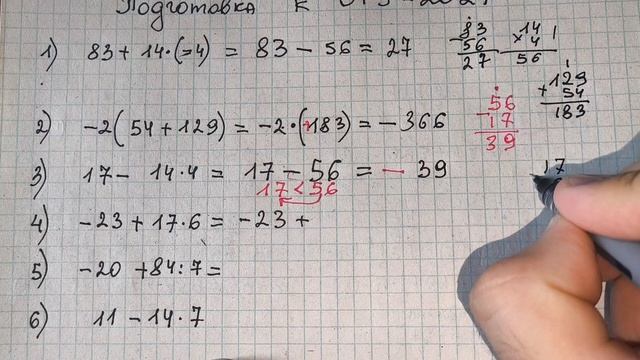 Подготовка к
1) 83 + 14·(-4) = 83 - 56 = 27
83
- 56
27
14
× 4
56
1
129
+ 54
183
2) -2(54+129) = -2·(183) = -366
56
- 17
39
3) 17 - 14·4 = 17 - 56 = - 39
17 < 56
4) -23 + 17·6 = -23 +
17
5) -20 + 84:7 =
6) 11 - 14·7